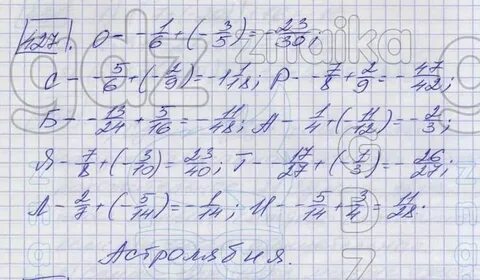 427. О - -1/6 + (-3/5) = -23/30;
С - -5/6 + (-2/9) = -1 1/18; Р - -7/8 + 2/9 = -47/42;
Б - -13/24 + 5/16 = -11/48; А - -1/4 + (-11/12) = -2/3;
Я - 7/8 + (-3/10) = 23/40; Т - -17/27 + (-7/3) = -26/27;
Л - 2/7 + (-5/14) = -1/14; И - -5/14 + 3/4 = 11/28.
Астролябия.